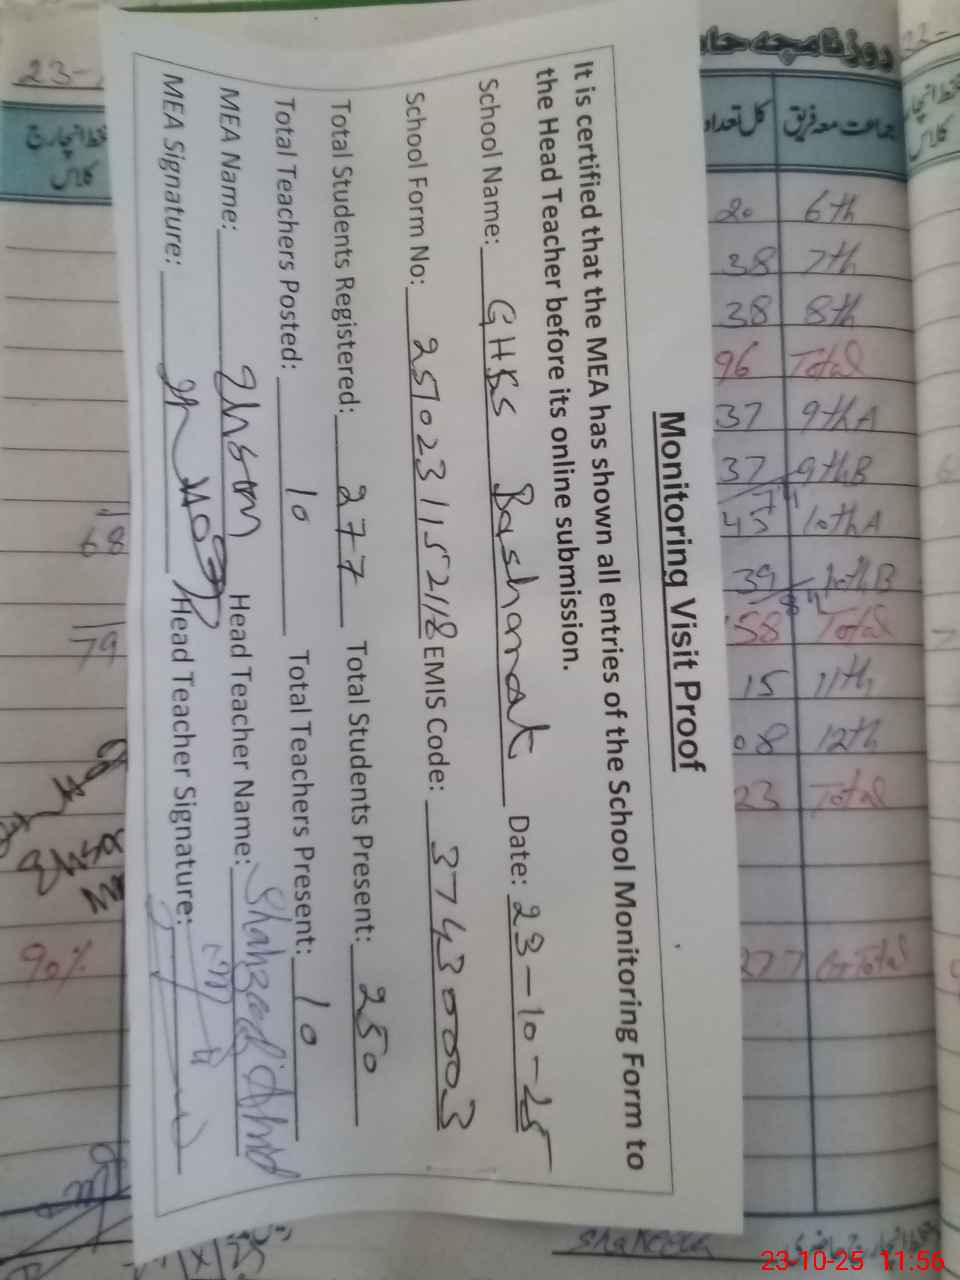 Monitoring Visit Proof
It is certified that the MEA has shown all entries of the School Monitoring Form to
the Head Teacher before its online submission.
School Name: GHSS Basharat Date: 23-10-25
School Form No: 2510231152118 EMIS Code: 37430003
Total Students Registered: 277 Total Students Present: 250
Total Teachers Posted: 10 Total Teachers Present: 10
MEA Name: Head Teacher Name: Shahzad Ahmd
MEA Signature: Head Teacher Signature:
روزنامچہ
جماعت معہ فریق کل تعداد
6th 20
7th 38
8th 38
Total 96
9th A 37
9th B 37
74
10th A 45
10th B 39
84
Total 158
11th 15
12th 08
23 Total
G.Total 277
23-
انچارج
کلاس
68
79
90%
22-
کلاس
Shakeela
23-10-25 11:56